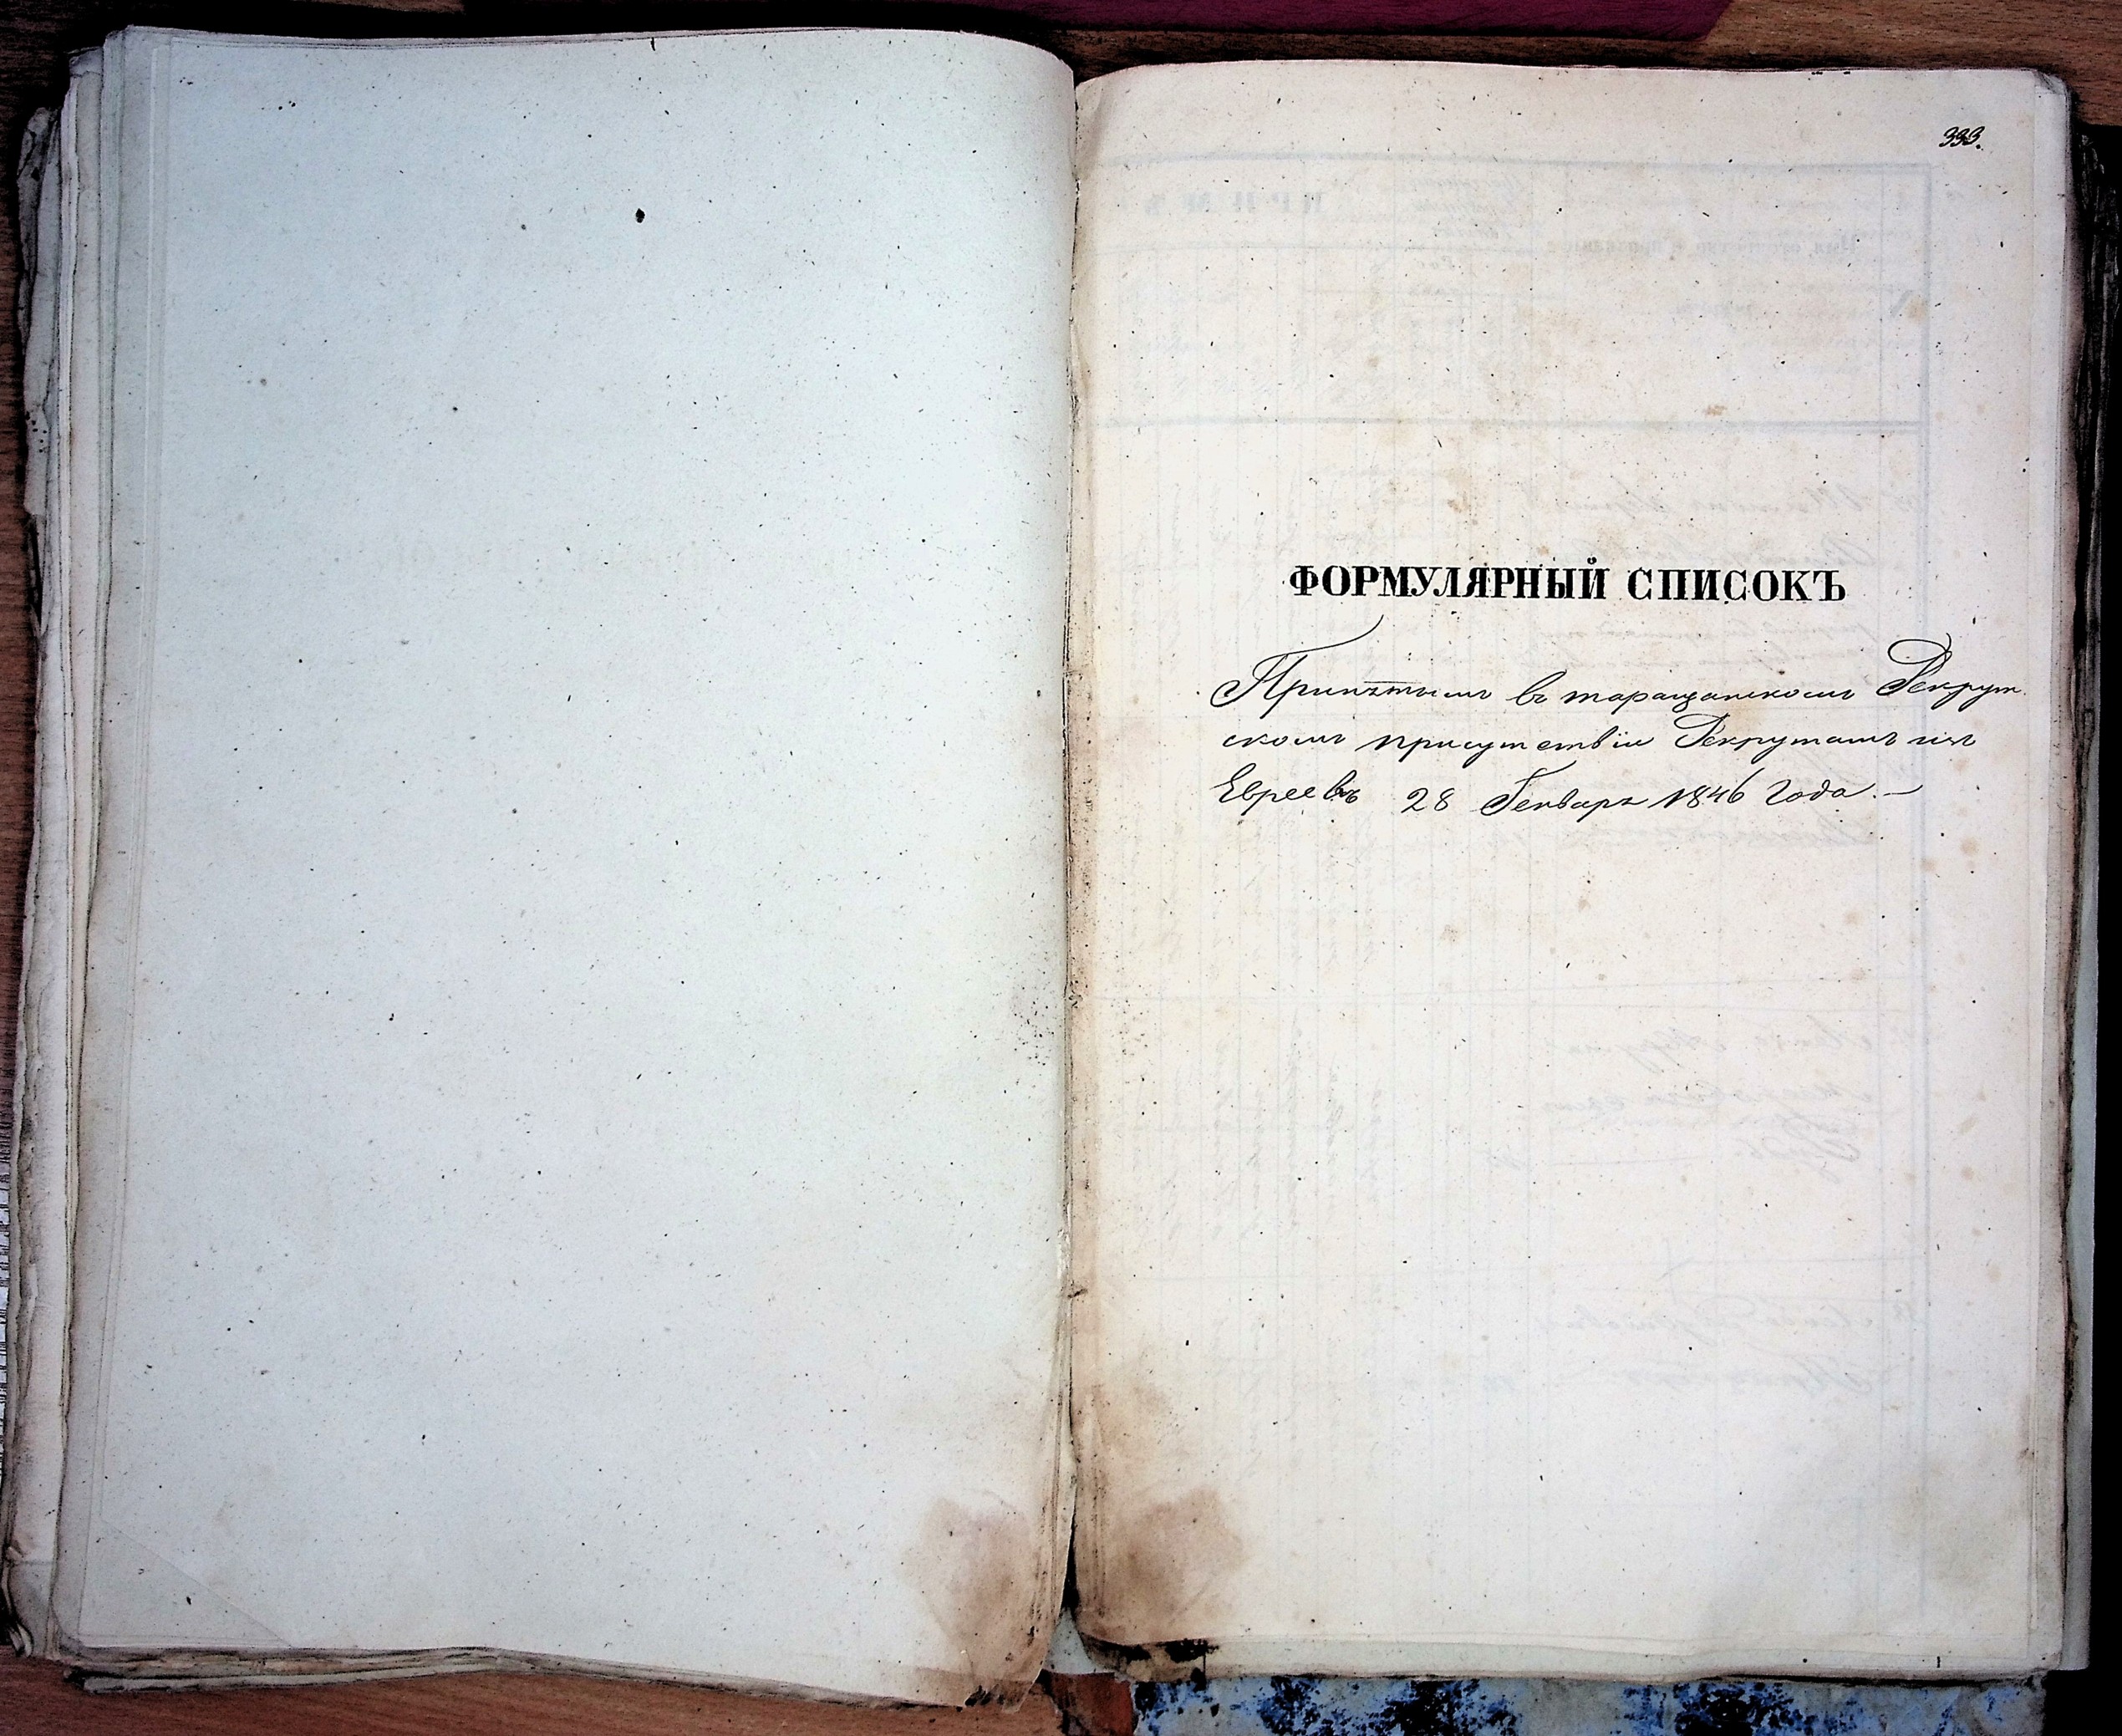 333.
ФОРМУЛЯРНЫЙ СПИСОКЪ
Принятымъ въ таращанскомъ Рекрут
скомъ присутствіи Рекрутамъ изъ
Евреевъ 28 Генваря 1846 Года. —